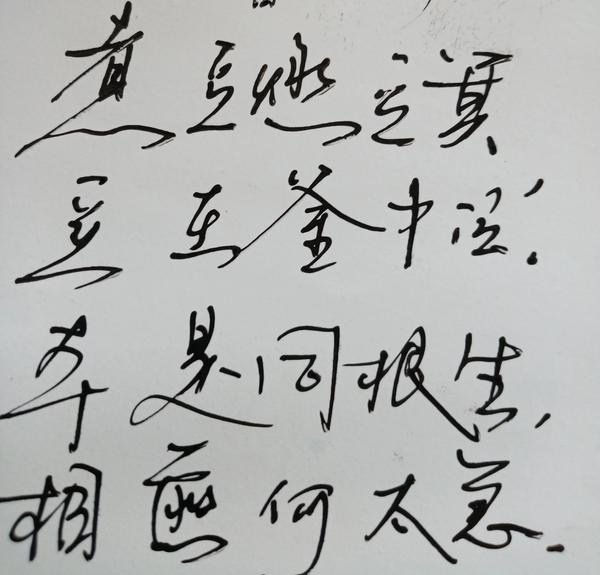 煮豆燃豆萁
豆在釜中泣！
本是同根生，
相煎何太急.